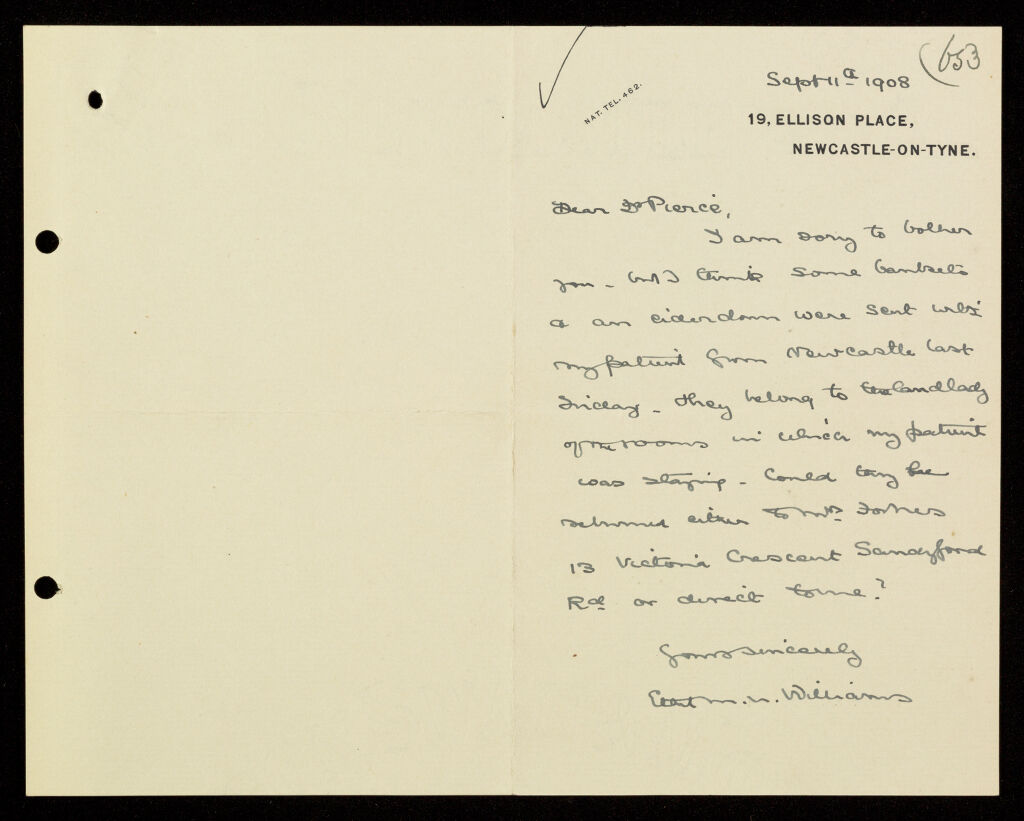 653
Sept 11th 1908
NAT. TEL. 462.
19, ELLISON PLACE,
NEWCASTLE-ON-TYNE.
Dear Dr Pierce,
I am sorry to bother
you - but I think some blankets
& an eiderdown were sent with
my patient from Newcastle last
Friday - they belong to the landlady
of the rooms in which my patient
was staying - Could they be
returned either to Mrs
13 Victoria Crescent Sandyford
Rd or direct to me?
Yours sincerely
Ethel M. N. Williams